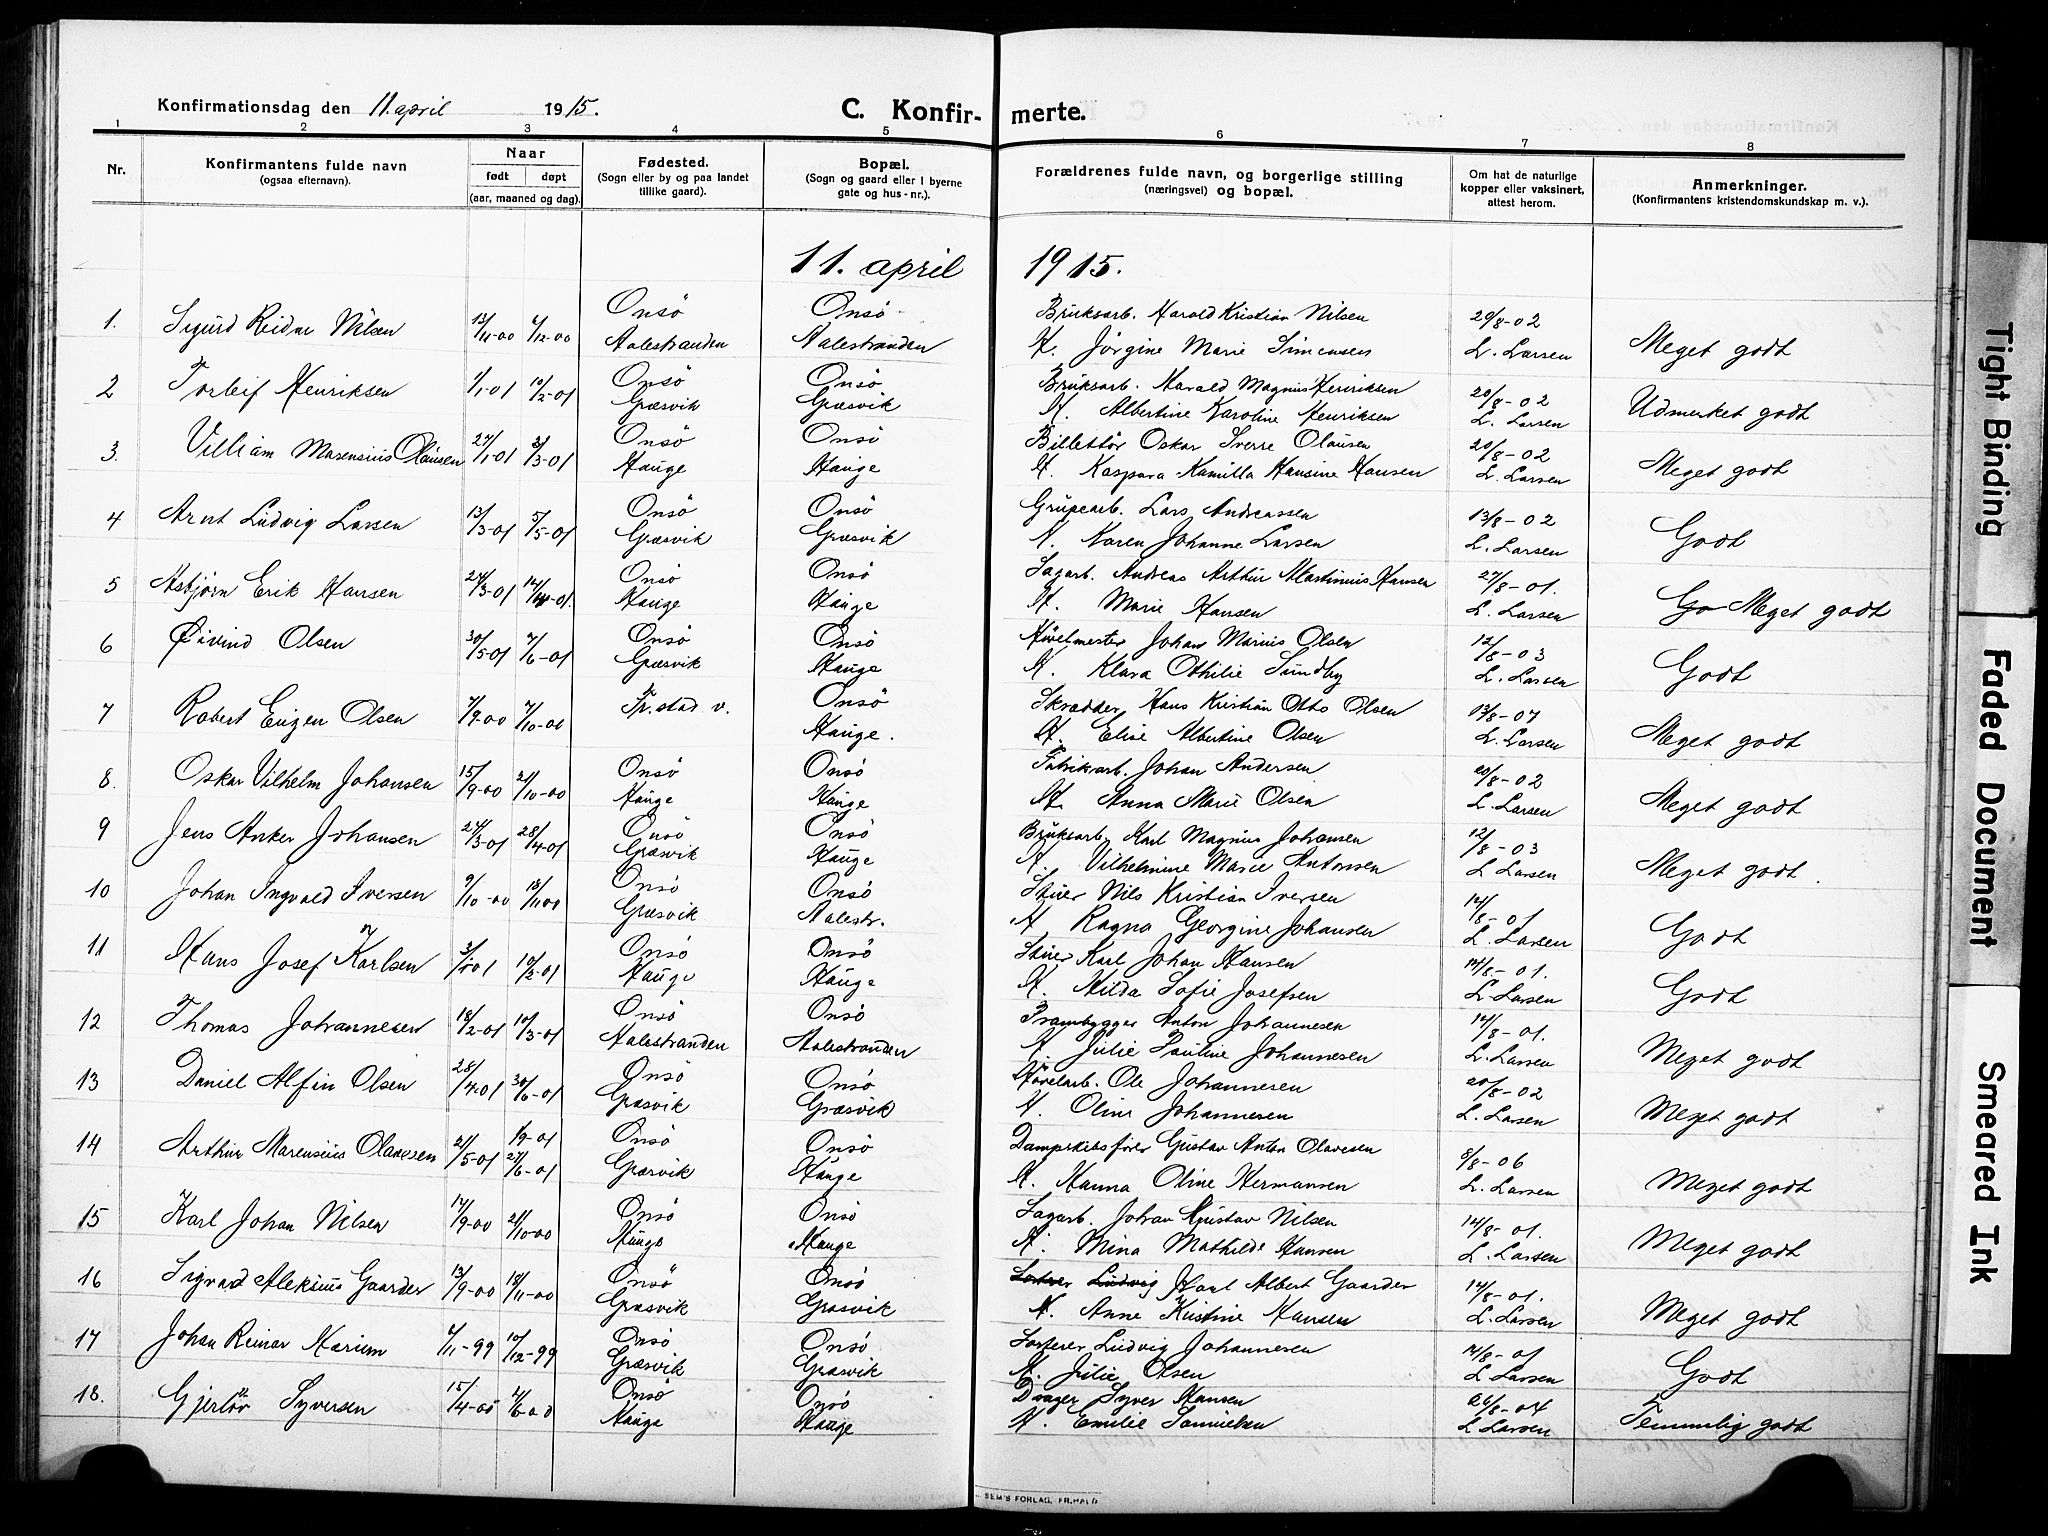 Konfirmationsdag den 11. april 1915.
C. Konfirmerte.
1 2 3 4 5 6 7 8
Nr.
Konfirmantens fulde navn
(ogsaa efternavn).
Naar
født døpt
(aar, maaned og dag).
Fødested.
(Sogn eller by og paa landet
tillike gaard).
Bopæl.
(Sogn og gaard eller i byerne
gate og hus-nr.).
Forældrenes fulde navn, og borgerlige stilling
(næringsvei) og bopæl.
Om hat de naturlige
kopper eller vaksinert,
attest herom.
Anmerkninger.
(Konfirmantens kristendomskundskap m. v.).
11. april 1915.
1. Sigurd Reidar Nilsen 13/11-00 /12-00 Onsö Onsö Bruksarb. Harald Kristian Nilsen 29/8-02
Aalestranden Aalestranden H. Jörgine Marie Simensen L. Larsen Meget godt
2 Torleif Henriksen 1/1-01 10/2-01 Onsö Onsö Bruksarb. Harald Magnus Henriksen 20/8-02
Græsvik Græsvik H. Albertine Karoline Henriksen L. Larsen Udmerket godt
3. Villiam Marensius Olausen 27/1-01 3/3-01 Onsö Onsö Billettör Oskar Sverre Olausen 20/8-02
Hauge Hauge H. Kaspara Kamilla Hansine Hansen L. Larsen Meget godt
4 Arnt Ludvig Larsen 13/3-01 5/5-01 Onsö Onsö Grubearb. Lars Andreassen 13/8-02
Græsvik Græsvik H. Karen Johanne Larsen L. Larsen Godt
5 Asbjörn Erik Hansen 24/3-01 14/4-01. Onsö Onsö Sagarb. Andreas Arthur Martinius Hansen 27/8-01.
Hauge Hauge H. Marie Hansen L. Larsen Go Meget godt
6 Øivind Olsen 30/5-01 /6-01 Onsö Onsö Hövelmester Johan Marius Olsen 12/8-03
Græsvik Hauge H. Klara Othilie Sundby L. Larsen Godt
7 Robert Eugen Olsen /9-00 7/10-00 Fr.stad v. Onsö Skrædder Hans Kristian Otto Olsen 13/8-07
Hauge. H. Elise Albertine Olsen L. Larsen Meget godt
8. Oskar Vilhelm Johansen 15/9-00 21/10-00 Onsö Onsö Fabrikarb. Johan Andersen 20/8-02
Hauge Hauge H. Anna Marie Olsen L. Larsen Meget godt
9 Jens Anker Johansen 24/3-01 28/4-01 Onsö Onsö Bruksarb. Karl Magnus Johansen 12/8-03
Græsvik Hauge H. Vilhelmine Marie Antonsen L Larsen Meget godt.
10 Johan Ingvald Iversen 9/10-00 18/11 00 Onsö Onsö Stuer Nils Kristian Iversen 14/8-01
Græsvik Aalestr. H Ragna Georgine Johansen L. Larsen Godt
11 Hans Josef Karlsen 3/1-01 10/2-01 Onsö Onsö Stuer Karl Johan Hansen 14/8-01.
Hauge Hauge H. Hilda Sofie Josefsen L. Larsen Godt
12 Thomas Johannesen 18/2-01 10/3-01 Onsö Onsö Prambygger Anton Johannesen 14/8-01.
Aalestranden Aalestranden H Julie Pauline Johannesen L. Larsen Meget godt
13 Daniel Alfin Olsen 28/4-01 30/6-01 Onsö Onsö Hövelarb. Ole Johannesen 20/8-02
Græsvik Græsvik H. Oline Johannesen L. Larsen Meget godt
14 Arthur Marensius Olavesen 21/5-01 1/9-01 Onsö Onsö Dampskibsförer Gustav Anton Olavesen 8/8-06
27/6-01 Græsvik Hauge H. Hanna Oline Hermansen L. Larsen Meget godt
15 Karl Johan Nilsen 17/9-00 21/10-00 Onsö Onsö Sagarb. Johan Gustav Nilsen 14/8-01.
Hauge Hauge H. Mina Mathilde Hansen L. Larsen Meget godt
16 Sigvard Aleksius Gaarder 13/9-00 18/11-00 Onsö Onsö Sorterer Ludvig Karl Albert Gaarder 14/8-01.
Græsvik Græsvik H. Anne Kristine Hansen L. Larsen Meget godt
17 Johan Reinar Marium /11-99 10/12-99 Onsö Onsö Sorterer Ludvig Johannesen 14/8-01
Græsvik Græsvik H. Julie Olsen L Larsen Godt
18. Gjerlöv Syversen 15/4-00 /6-00 Onsö Onsö Drager Syver Hansen 26/8-04
Hauge Hauge H. Emilie Samuelsen L Larsen Temmelig godt
SEM'S FORLAG, FR.HALD
Tight Binding
Faded Document
Smeared Ink